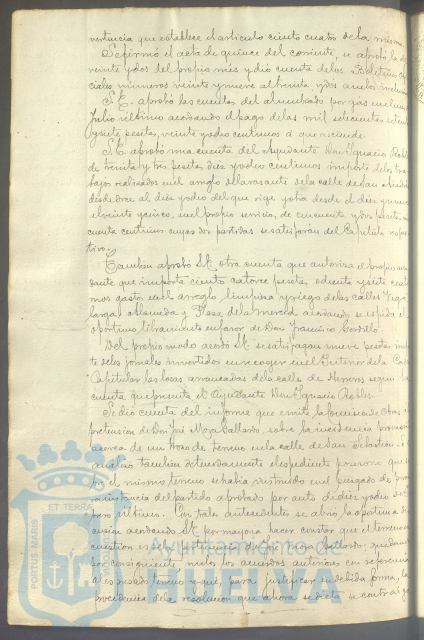 vertencia que establece el articulo ciento cuatro de la misma
Se firmó el acta de quince del corriente, se aprobó la de
veinte y dos del propio mes y dió cuenta de los Boletines ofi
ciales números veinte y nueve al treinta y dos ambos inclusive
S.E. aprobó las cuentas del alumbrado por gas en el mes
Julio último acordando el pago de las mil seiscientas setenta
y siete pesetas, veinte y ocho centimos á que asciende.
S.E. aprobó una cuenta del Ayudante Don Ignacio Robles
de treinta y tres pesetas diez y ocho centimos importe de los tra
bajos realizados en el arreglo de la rosante de la calle de San Andrés
desde doce al diez y ocho del que rige y otra desde el diez y nueve
el veinte y cinco, en el propio servicio, de cincuenta y dos pesetas
cuenta centimos cuyas dos partidas se satisfarán del Capitulo respec
tivo.
Tambien aprobó S.E. otra cuenta que autoriza el propio ayu
dante que importa ciento catorce pesetas, ochenta y siete centi
mos gasto en el arreglo, limpieza y riego de las calles Vega
larga, Alameda y Plaza de la merced acordando se expida el
oportuno libramiento en favor de Don Francisco Gordillo.
Del propio modo acordó S.E. se satisfagan nueve pesetas impor
te de los jornales invertidos en recoger en el interior de la Casa
Capitular las losas arrancadas de la calle de Herreros segun la
cuenta que presenta el Ayudante Don Ignacio Robles.
Se dió cuenta del informe que emite la Comision de Obras
pretension de Don José Mora Gallardo, sobre la incidencia promovida
acerca de un trozo de terreno en la calle de San Sebastian
analizó tambien detenidamente el espediente posesorio que
bre el mismo terreno se habia instruido en el juzgado de prime
ra instancia del partido aprobado por auto de diez y ocho de
pasado último. Con tales antecedentes se abrió la oportuna dis
cusion acordando S.E. por mayoria hacer constar que el terreno en
cuestion es de la pertenencia del Señor Mora Gallardo; quedando
por consiguiente nulos los acuerdos anteriores con referencia
al espresado terreno y que, para justificar en debida forma, la
procedencia de la resolucion que ahora se dicta se contraiga
PORTUS MARIS
ET TERRAE
CUSTODIA
Ayuntamiento de
HUELVA